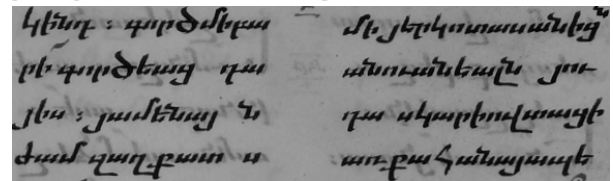 կինդ : գործ մի բա
րի գործեաց դա
յիս : յամենայն
ժամ զաղքատս
մի յերկոտասանից
անուանեալն յու
դա սկարիովտացի
առ քահանայապե